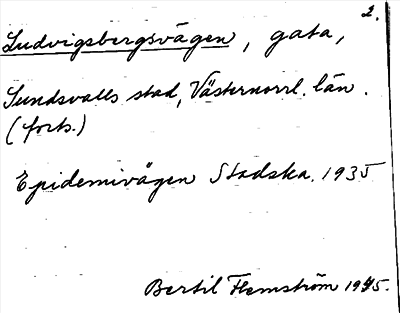 2.
Ludvigsbergsvägen, gata,
Sundsvalls stad, Västernorrl. län.
(forts.)
Epidemivägen Stadska. 1935
Bertil Flemström 1945.